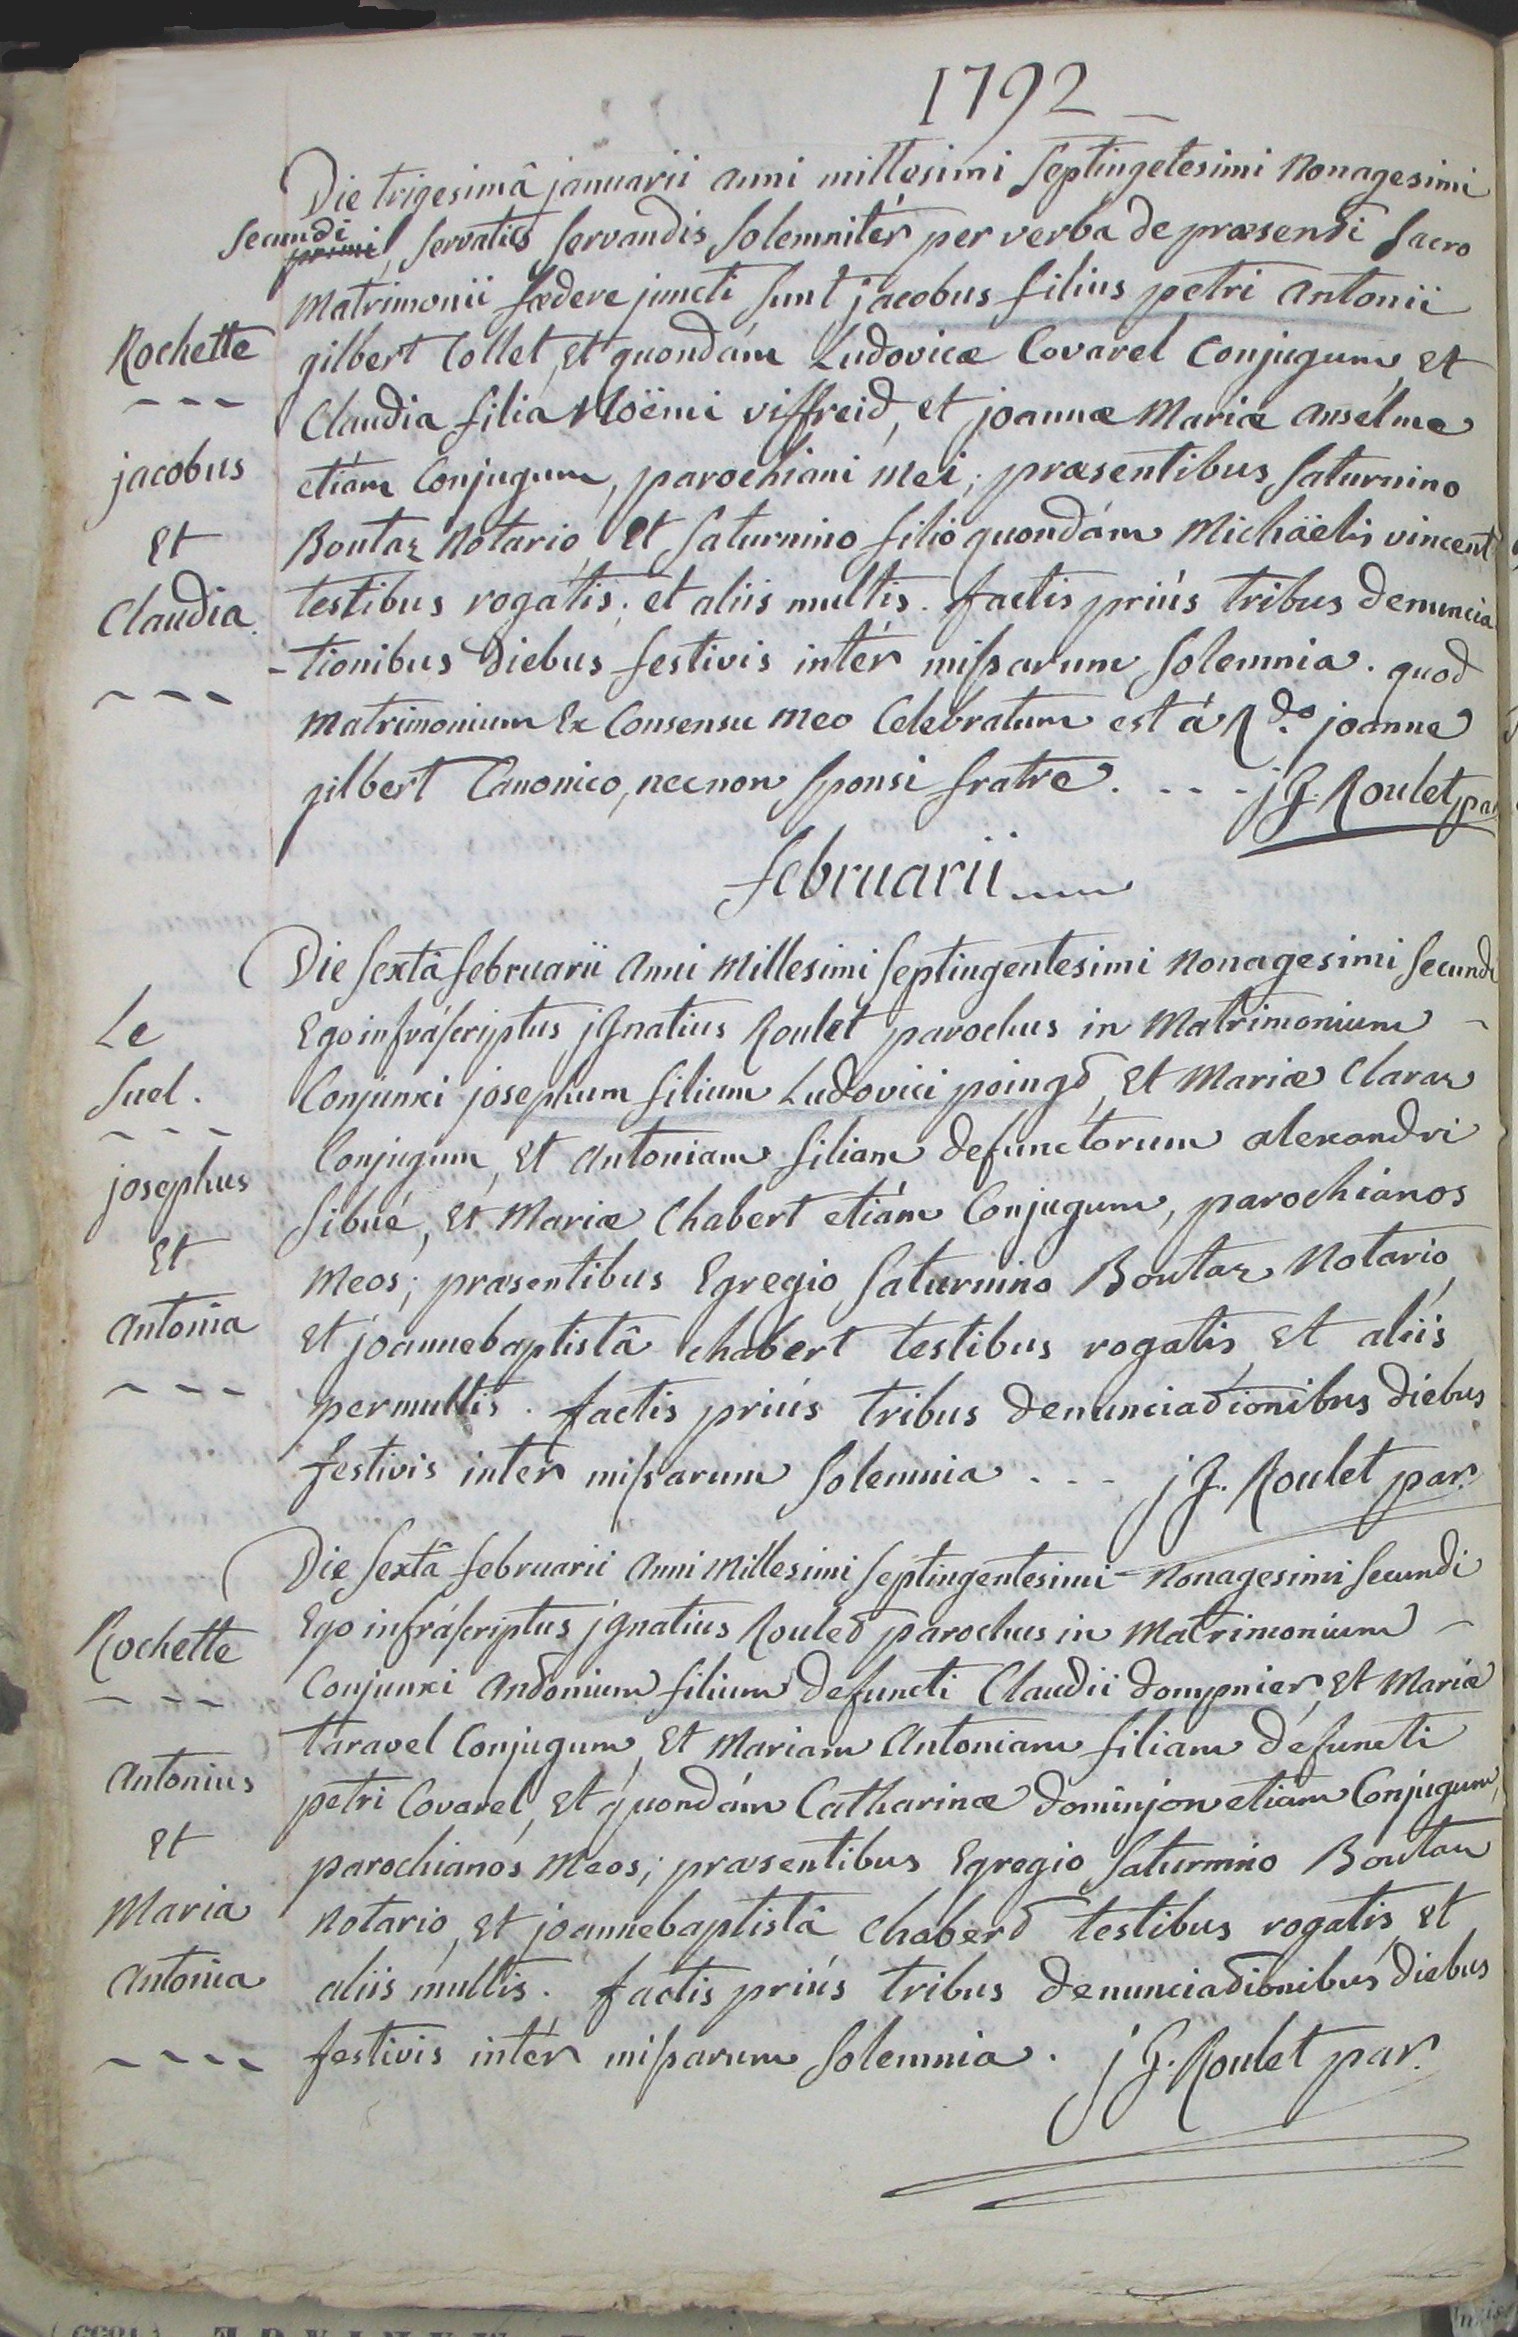 1792
Die trigesimâ januarii anni millesimi septingetesimi Nonagesimi
secundi
primi servatis servandis solemnitér per verba de præsenti sacro
Matrimonii fædere juncti sunt jacobus filius petri antonii
Rochette
gilbert Collet, et quondám Ludovicæ Covarel Conjugum, et
Claudia filia Noëmi viffreid, et joannæ Mariæ anselme
jacobus
etiám Conjugum, parochiani mei; præsentibus saturnino
Et
Boutaz Notario, et saturnino filio quondám Michäelis vincent
Claudia
testibus rogatis, et aliis multis. factis priús tribus denuncia
-tionibus diebus festivis intér missarum solemnia. quod
Matrimonium Ex Consensu meo Celebratum est á Rdo. joanne
gilbert Canonico, necnon sponsi fratre. - - - jg. Roulet par
februarii
Die sextâ februarii anni Millesimi septingentesimi Nonagesimi secundi
Le
Ego infráscriptus jgnatius Roulet parochus in Matrimonium -
Suel.
Conjunxi josephum filium Ludovici poingd, et Mariæ Claraz
Conjugum, et antoniam filiam defunctorum alexandri
josephus
sibué, et Mariæ Chabert etiám Conjugum, parochianos
Et
Meos; præsentibus Egregio saturnino Boutaz Notario,
antonia
et joannebaptistâ chabert testibus rogatis, et aliis
permultis. factis priús tribus denunciationibus diebus
festivis intér missarum solemnia - - - jg. Roulet par.
Die sextâ februarii anni Millesimi septingentesimi Nonagesimi secundi
Rochette
Ego infráscriptus jgnatius Rouled parochus in Matrimonium -
Conjunxi antonium filium defuncti Claudii dompnier, et Mariæ
taravel Conjugum, et Mariam antoniam filiam defuncti
Antonius
petri Covarel, et quondám Catharinæ dominjon etiám Conjugum,
Et
parochianos Meos; præsentibus Egregio saturnino Boutaz
Maria
Notario, et joannebaptistâ Chaberd testibus rogatis, et
Antonia
aliis multis. factis priús tribus denunciationibus diebus
festivis intér missarum solemnia. jg. Roulet par.